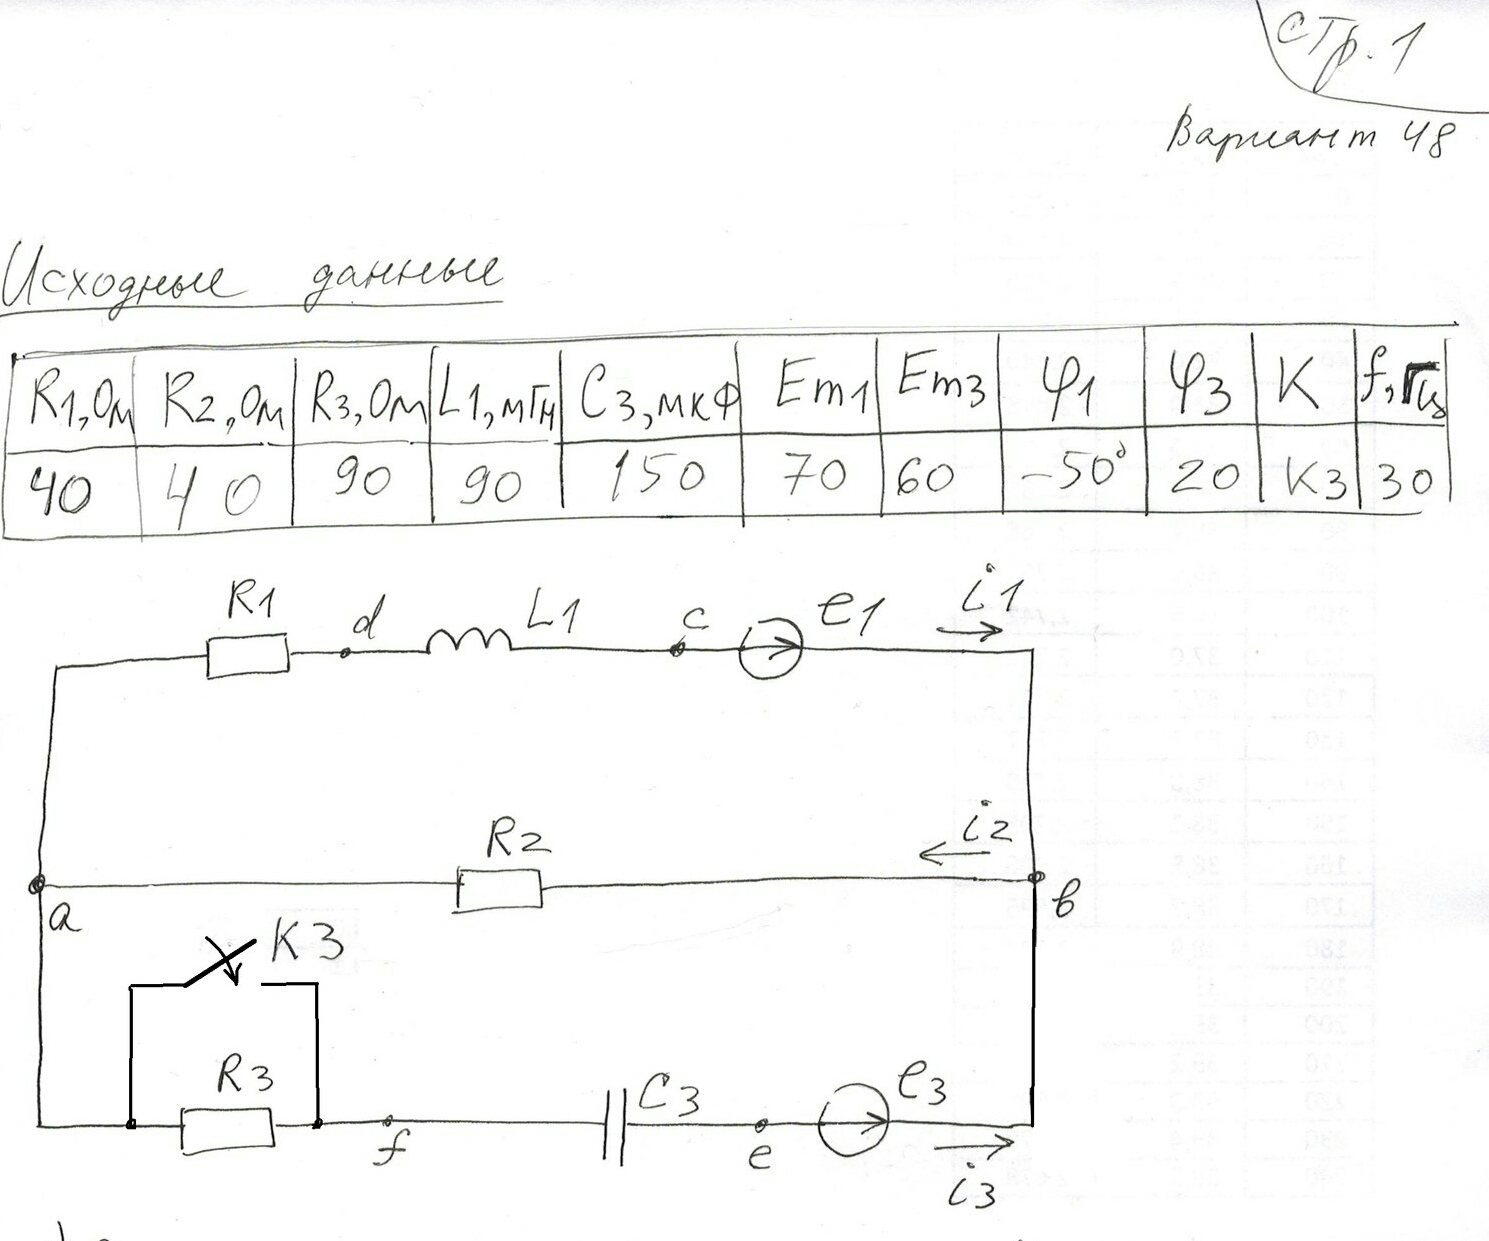 стр. 1
Вариант 48
Исходные данные
R1,Ом R2,Ом R3,Ом L1,мГн C3,мкФ Em1 Em3 φ1 φ3 K f,Гц
40 40 90 90 150 70 60 -50° 20 K3 30
R1 d L1 c e1 i1
R2 i2
a в
K3
R3 f C3 e e3 i3